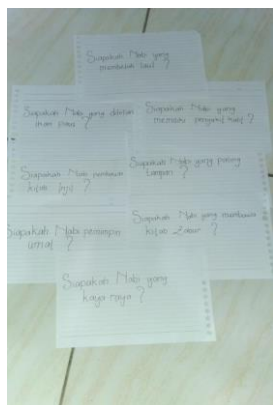 Siapakah Nabi yang
membelah laut ?
Siapakah Nabi yang
ikan paus ?
Siapakah Nabi yang
pengemis
Siapakah Nabi pembawa
kitab Injil ?
Siapakah Nabi yang paling
tampan ?
Siapakah Nabi pemimpin
umat ?
Siapakah Nabi yang membawa
kitab Zabur ?
Siapakah Nabi yang
kaya raya ?